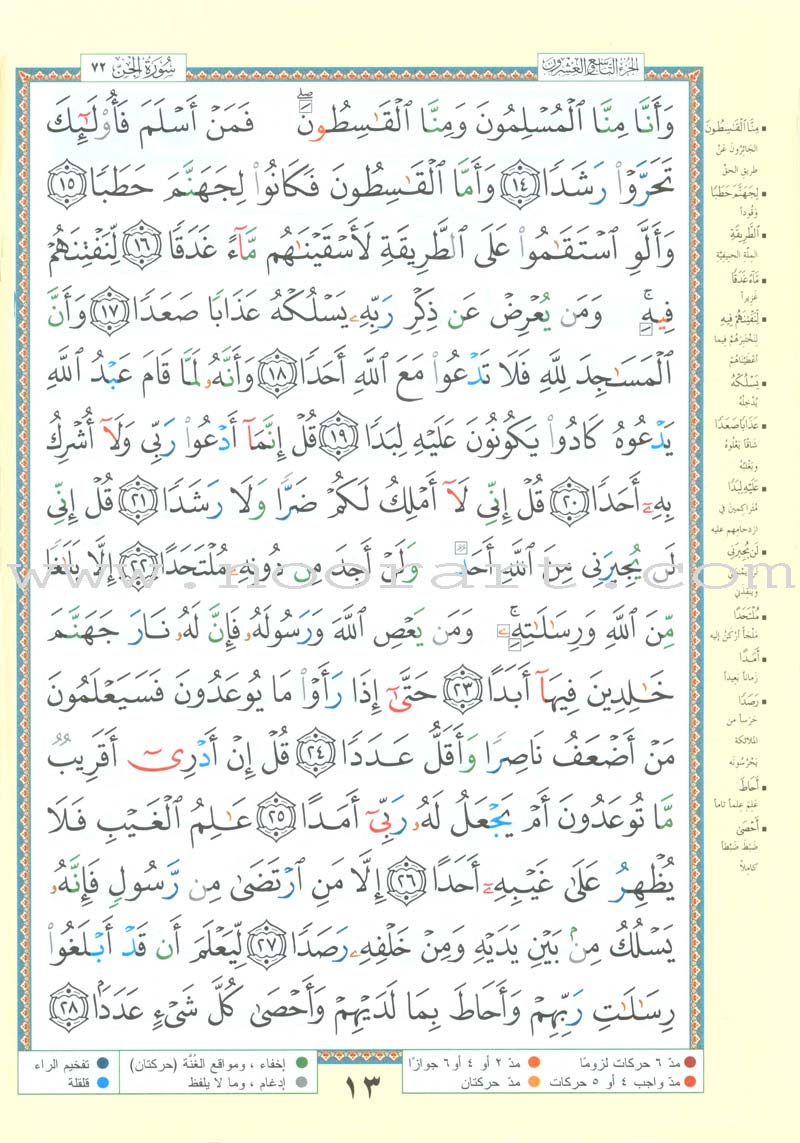 الجزء التاسع والعشرون
سُورَةُ الجِنّ ٧٢
وَأَنَّا مِنَّا ٱلْمُسْلِمُونَ وَمِنَّا ٱلْقَٰسِطُونَۖ فَمَنْ أَسْلَمَ فَأُو۟لَٰٓئِكَ
تَحَرَّوْا۟ رَشَدًا ﴿١٤﴾ وَأَمَّا ٱلْقَٰسِطُونَ فَكَانُوا۟ لِجَهَنَّمَ حَطَبًا ﴿١٥﴾
وَأَلَّوِ ٱسْتَقَٰمُوا۟ عَلَى ٱلطَّرِيقَةِ لَأَسْقَيْنَٰهُم مَّآءً غَدَقًا ﴿١٦﴾ لِّنَفْتِنَهُمْ
فِيهِۚ وَمَن يُعْرِضْ عَن ذِكْرِ رَبِّهِۦ يَسْلُكْهُ عَذَابًا صَعَدًا ﴿١٧﴾ وَأَنَّ
ٱلْمَسَٰجِدَ لِلَّهِ فَلَا تَدْعُوا۟ مَعَ ٱللَّهِ أَحَدًا ﴿١٨﴾ وَأَنَّهُۥ لَمَّا قَامَ عَبْدُ ٱللَّهِ
يَدْعُوهُ كَادُوا۟ يَكُونُونَ عَلَيْهِ لِبَدًا ﴿١٩﴾ قُلْ إِنَّمَآ أَدْعُوا۟ رَبِّى وَلَآ أُشْرِكُ
بِهِۦٓ أَحَدًا ﴿٢٠﴾ قُلْ إِنِّى لَآ أَمْلِكُ لَكُمْ ضَرًّا وَلَا رَشَدًا ﴿٢١﴾ قُلْ إِنِّى
لَن يُجِيرَنِى مِنَ ٱللَّهِ أَحَدٌ وَلَنْ أَجِدَ مِن دُونِهِۦ مُلْتَحَدًا ﴿٢٢﴾ إِلَّا بَلَٰغًا
مِّنَ ٱللَّهِ وَرِسَٰلَٰتِهِۦۚ وَمَن يَعْصِ ٱللَّهَ وَرَسُولَهُۥ فَإِنَّ لَهُۥ نَارَ جَهَنَّمَ
خَٰلِدِينَ فِيهَآ أَبَدًا ﴿٢٣﴾ حَتَّىٰٓ إِذَا رَأَوْا۟ مَا يُوعَدُونَ فَسَيَعْلَمُونَ
مَنْ أَضْعَفُ نَاصِرًا وَأَقَلُّ عَدَدًا ﴿٢٤﴾ قُلْ إِنْ أَدْرِىٓ أَقَرِيبٌ
مَّا تُوعَدُونَ أَمْ يَجْعَلُ لَهُۥ رَبِّىٓ أَمَدًا ﴿٢٥﴾ عَٰلِمُ ٱلْغَيْبِ فَلَا
يُظْهِرُ عَلَىٰ غَيْبِهِۦٓ أَحَدًا ﴿٢٦﴾ إِلَّا مَنِ ٱرْتَضَىٰ مِن رَّسُولٍ فَإِنَّهُۥ
يَسْلُكُ مِنۢ بَيْنِ يَدَيْهِ وَمِنْ خَلْفِهِۦ رَصَدًا ﴿٢٧﴾ لِّيَعْلَمَ أَن قَدْ أَبْلَغُوا۟
رِسَٰلَٰتِ رَبِّهِمْ وَأَحَاطَ بِمَا لَدَيْهِمْ وَأَحْصَىٰ كُلَّ شَىْءٍ عَدَدًۢا ﴿٢٨﴾
▪ مِنَّا ٱلْقَٰسِطُونَ
الجائرُونَ عَنْ
طريق الحقّ
▪ لِجَهَنَّمَ حَطَبًا
وَقُوداً
▪ ٱلطَّرِيقَةِ
الملّة الحنيفيّة
▪ مَّآءً غَدَقًا
غزيراً
▪ لِنَفْتِنَهُمْ فِيهِ
لنَخْتَبِرَهُمْ فيما
أعْطَيْنَاهُمْ
▪ يَسْلُكْهُ
يُدْخِلْهُ
▪ عَذَابًا صَعَدًا
شاقّاً يَعْلُوهُ
ويَغْلِبُهُ
▪ عَلَيْهِ لِبَدًا
مُتراكمينَ في
ازدحامِهم عليه
▪ لَن يُجِيرَنِى
ويُنْقِذَني
▪ مُلْتَحَدًا
مَلْجَأً أرْكَنُ إليه
▪ أَمَدًا
زماناً بعيداً
▪ رَصَدًا
حَرَساً من
الملائكة
يَحْرُسُونَه
▪ أَحَاطَ
عَلِمَ عِلماً تامّاً
▪ أَحْصَىٰ
ضَبَطَ ضَبْطاً
كامِلاً
www.noorart.com
مدّ ٦ حركات لزومًا
مدّ ٢ أو ٤ أو ٦ جوازًا
مدّ واجب ٤ أو ٥ حركات
مدّ حركتان
١٣
إخفاء ، ومواقع الغُنَّة (حركتان)
تفخيم الراء
إدغام ، وما لا يلفظ
قلقلة